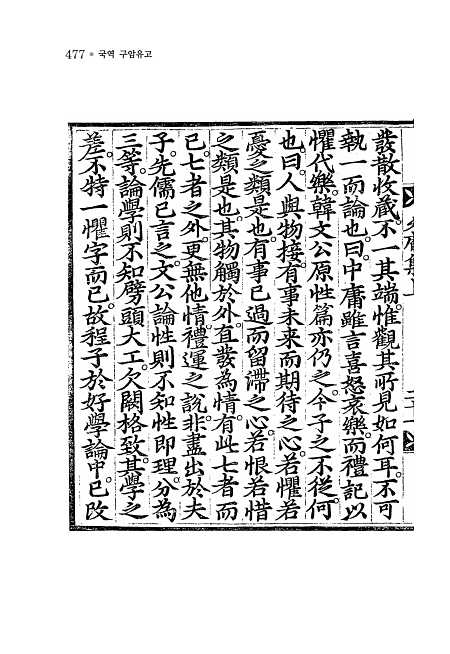 477 ● 국역 구암유고
發散收藏。不一其端。惟觀其所見如何耳。不可
執一而論也。曰。中庸雖言喜怒哀樂。而禮記以
懼代樂。韓文公原性篇亦仍之。今子之不從何
也。曰。人與物接。有事未來而期待之心。若懼若
憂之類是也。有事已過而留滯之心。若恨若惜
之類是也。其物觸於外。直發為情。有此七者而
已。七者之外。更無他情。禮運之說。非盡出於夫
子。先儒已言之。文公論性。則不知性即理。分為
三等。論學則不知劈頭大工。欠闕格致。其學之
差。不特一懼字而已。故程子於好學論中。已改